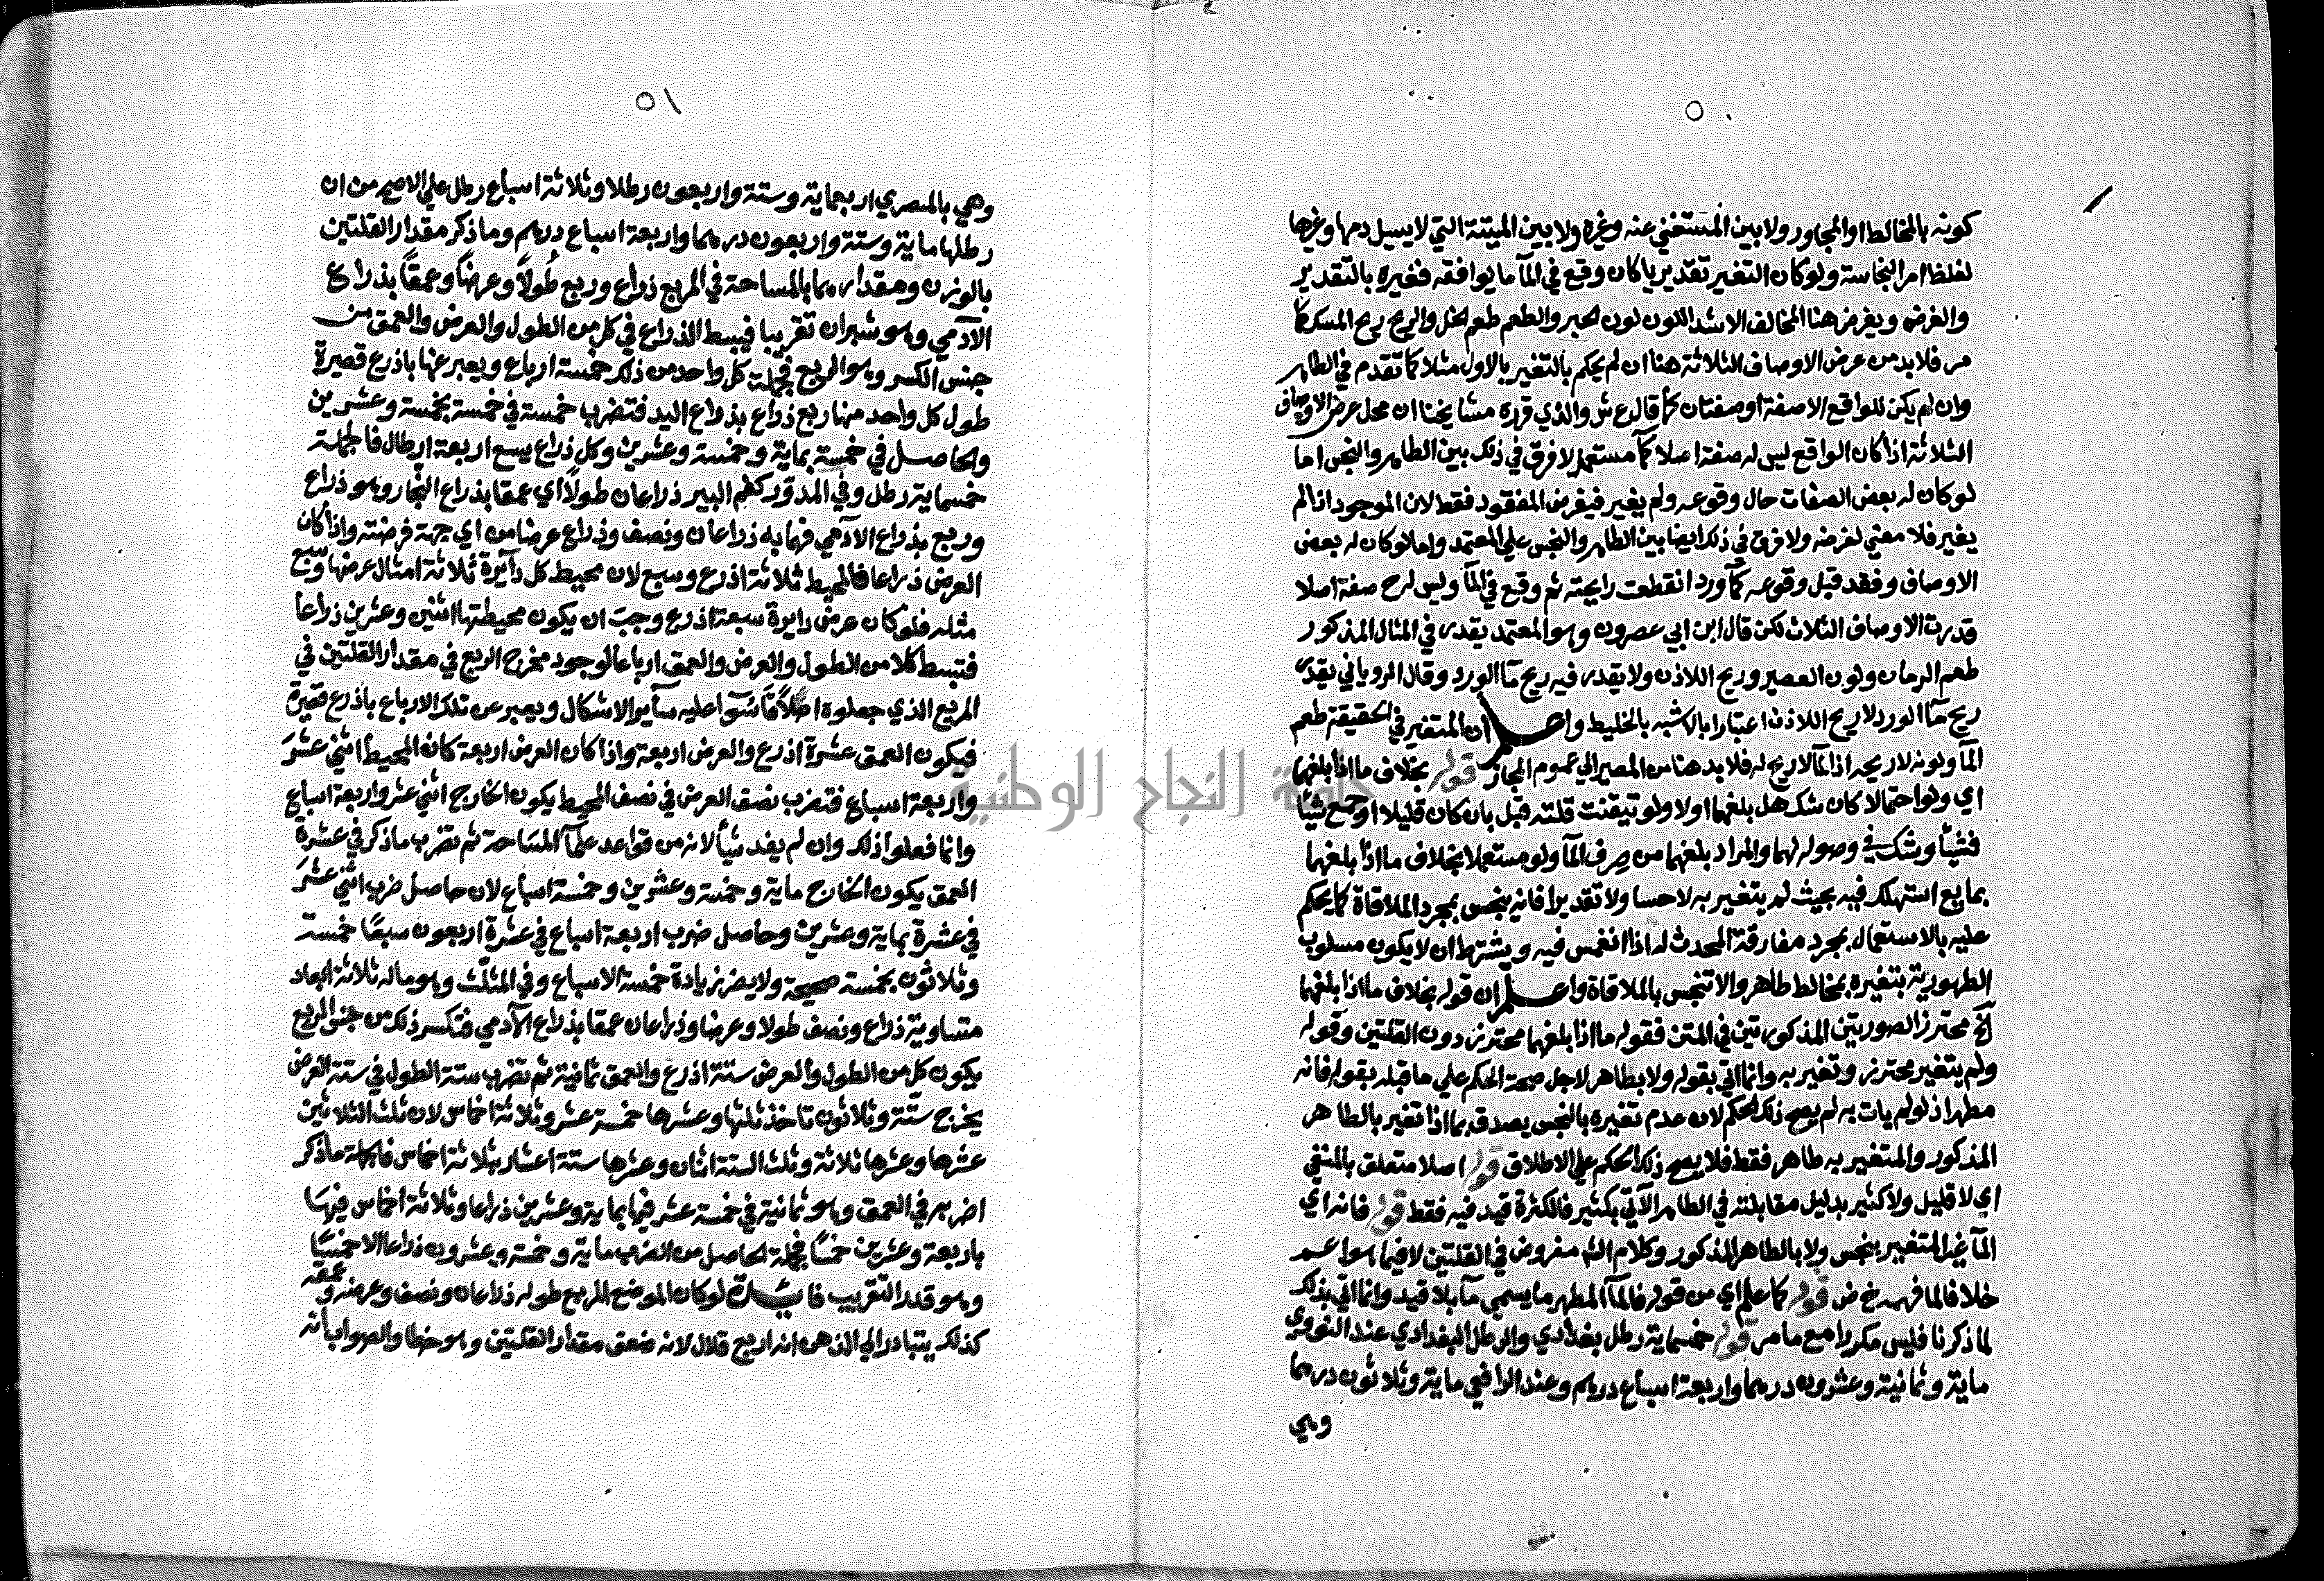 ٥٠
كونه بالمخالط او المجاور ولا بين المستغني عنه وغيره ولا بين الميتة التي لا يسيل دمها وغيرها
لغلظ امر النجاسة ولو كان التغير تقديريا كان وقع في المآ ما يوافقه فغيره بالتقدير
والفرض ويفرض هنا المخالف الاشد اللون لون الحبر والطعم طعم الخل والريح ريح المسك كما
مر فلا بد من عرض الاوصاف الثلاثة هنا ان لم يحكم بالتغير بالاول مثلا كما تقدم في الطاهر
وان لم يكن للواقع الا صفة او صفتان كما قاله ع ش والذي قرره مشايخنا ان محل عرض الاوصاف
الثلاثة اذا كان الواقع ليس له صفة اصلا كمآ مستعمل لا فرق في ذلك بين الطاهر والنجس اما
لو كان له بعض الصفات حال وقوعه ولم يغير فيفرض المفقود فقط لان الموجود اذا لم
يغير فلا معني لفرضه ولا فرق في ذلك ايضا بين الطاهر والنجس علي المعتمد واما لو كان له بعض
الاوصاف وفقد قبل وقوعه كمآورد انقطعت رايحته ثم وقع في المآ وليس له ح صفة اصلا
قدرت الاوصاف الثلاث لكن قال ابن ابي عصرون وهو المعتمد يقدر في المثال المذكور
طعم الرمان ولون العصير وريح اللاذن ولا يقدر فيه ريح مآ الورد وقال الروياني يقدر
ريح مآ الورد لا ريح اللاذن اعتبارا بالاشبه بالخليط واعلم ان المتغير في الحقيقة طعم
المآ ولونه لا ريحه اذ المآ لا ريح له فلا بد هنا من المصير الي عموم المجاز قوله بخلاف ما اذا بلغهما
اي ولو احتمالا كان شك هل بلغهما او لا ولو تيقنت قلته قبل بان كان قليلا او جمع شيئا
فشيأ وشك في وصوله لهما والمراد بلغهما من صرف المآ ولو مستعملا بخلاف ما اذا بلغهما
بمايع استهلك فيه بحيث لم يتغير به لا حسا ولا تقديرا فانه ينجس بمجرد الملاقاة كما يحكم
عليه بالاستعمال بمجرد مفارقة المحدث له اذا انغمس فيه ويشترط ان لا يكون مسلوب
الطهورية بتغيره بمخالط طاهر والا تنجس بالملاقاة واعلم ان قوله بخلاف ما اذا بلغهما
الخ محترز الصورتين المذكورتين في المتن فقوله ما اذا بلغهما محترز دون القلتين وقوله
ولم يتغير محترز وتغير به وانما اتي بقوله ولا بطاهر لاجل صحة الحكم علي ما قبله بقوله فانه
مطهر اذ لو لم يات به لم يصح ذلك الحكم لان عدم تغيره بالنجس يصدق بما اذا تغير بالطاهر
المذكور والمتغير به طاهر فقط فلا يصح ذلك الحكم علي الاطلاق قوله اصلا متعلق بالمنفي
اي لا قليل ولا كثير بدليل مقابلته في الطاهر الآتي بكثير فالكثرة قيد فيه فقط قوله فانه اي
المآ غير المتغير بنجس ولا بالطاهر المذكور وكلام الش مفروض في القلتين لا فيما هو اعم
خلافا لما فهمه خ ض قوله كما علم اي من قوله فالمآ المطهر ما يسمي مآ بلا قيد وانما اتي بذلك
لما ذكرنا فليس مكررا مع ما مر قوله خمسماية رطل بغدادي والرطل البغدادي عند النووي
ماية وثمانية وعشرون درهما واربعة اسباع درهم وعند الرافعي ماية وثلاثون درهما
وهي
٥١
وهي بالمصري اربعماية وستة واربعون رطلا وثلاثة اسباع رطل علي الاصح من ان
رطلها ماية وستة واربعون درهما واربعة اسباع درهم وما ذكر مقدار القلتين
بالوزن ومقدارهما بالمساحة في المربع ذراع وربع طولاً وعرضاً وعمقاً بذراع
الآدمي وهو شبران تقريبا فيبسط الذراع في كل من الطول والعرض والعمق من
جنس الكسر وهو الربع فجملة كل واحد من ذلك خمسة ارباع ويعبر عنها باذرع قصيرة
طول كل واحد منها ربع ذراع بذراع اليد فتضرب خمسة في خمسة بخمسة وعشرين
والحاصل في خمسة بماية وخمسة وعشرين وكل ذراع يسع اربعة ارطال فالجملة
خمسماية رطل وفي المدور كفم البير ذراعان طولاً اي عمقا بذراع النجار وهو ذراع
وربع بذراع الآدمي فهما به ذراعان ونصف وذراع عرضا من اي جهة فرضته واذا كان
العرض ذراعا فالمحيط ثلاثة اذرع وسبع لان محيط كل دآيرة ثلاثة امثال عرضها وسبع
مثله فلو كان عرض دايرة سبعة اذرع وجب ان يكون محيطها اثنين وعشرين ذراعا
فتبسط كلا من الطول والعرض والعمق ارباعا لوجود مخرج الربع في مقدار القلتين في
المربع الذي جعلوه اصلاً قاسوا عليه سآير الاشكال ويعبر عن تلك الارباع باذرع قصيرة
فيكون العمق عشرة اذرع والعرض اربعة واذا كان العرض اربعة كان المحيط اثني عشر
واربعة اسباع فتضرب نصف العرض في نصف المحيط يكون الخارج اثني عشر واربعة اسباع
وانما فعلوا ذلك وان لم يفد شيأ لانه من قواعد علمآ المساحة ثم تضرب ما ذكر في عشرة
العمق يكون الخارج ماية وخمسة وعشرين وخمسة اسباع لان حاصل ضرب اثني عشر
في عشرة بماية وعشرين وحاصل ضرب اربعة اسباع في عشرة اربعون سبعا خمسة
وثلاثون بخمسة صحيحة ولا يضر زيادة خمسة الاسباع وفي المثلث وهو ماله ثلاثة ابعاد
متساوية ذراع ونصف طولا وعرضا وذراعان عمقا بذراع الآدمي فتكسر ذلك من جنس الربع
يكون كل من الطول والعرض ستة اذرع والعمق ثمانية ثم تضرب ستة الطول في ستة العرض
يخرج ستة وثلاثون تاخذ ثلثها وعشرها خمسة عشر وثلاثة اخماس لان ثلث الثلاثين
عشرها وعشرها ثلاثة وثلث الستة اثنان وعشرها ستة اعشار بثلاثة اخماس فالجملة ما ذكر
اضربه في العمق وهو ثمانية في خمسة عشر فيها بماية وعشرين ذراعا وثلاثة اخماس فيها
باربعة وعشرين خمسًا فجملة الحاصل من الضرب ماية وخمسة وعشرون ذراعا الا خمسًا
وهو قدر التقريب فايدة لو كان الموضع المربع طوله ذراعان ونصف وعرضه وعمقه
كذلك يتبادر الي الذهن انه اربع قلال لانه ضعف مقدار القلتين وهو خطا والصواب انه
جامعة النجاح الوطنية